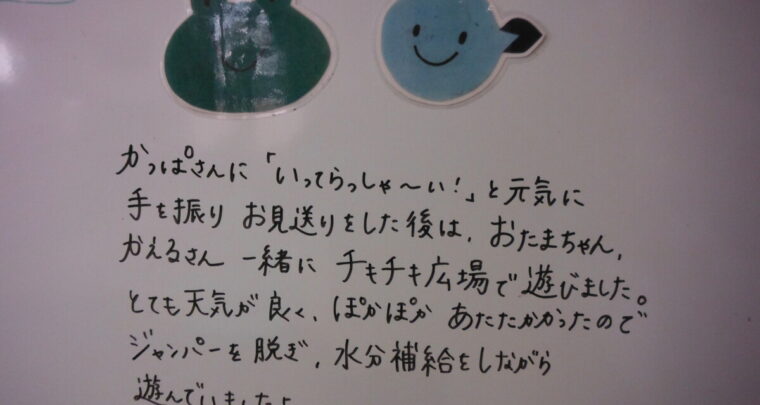 かっぱさんに「いってらっしゃ〜い!」と元気に
手を振り お見送りをした後は、おたまちゃん、
かえるさん 一緒に チキチキ広場で遊びました。
とても天気が良く、ぽかぽか あたたかかったので
ジャンパーを脱ぎ、水分補給をしながら
遊んでいました